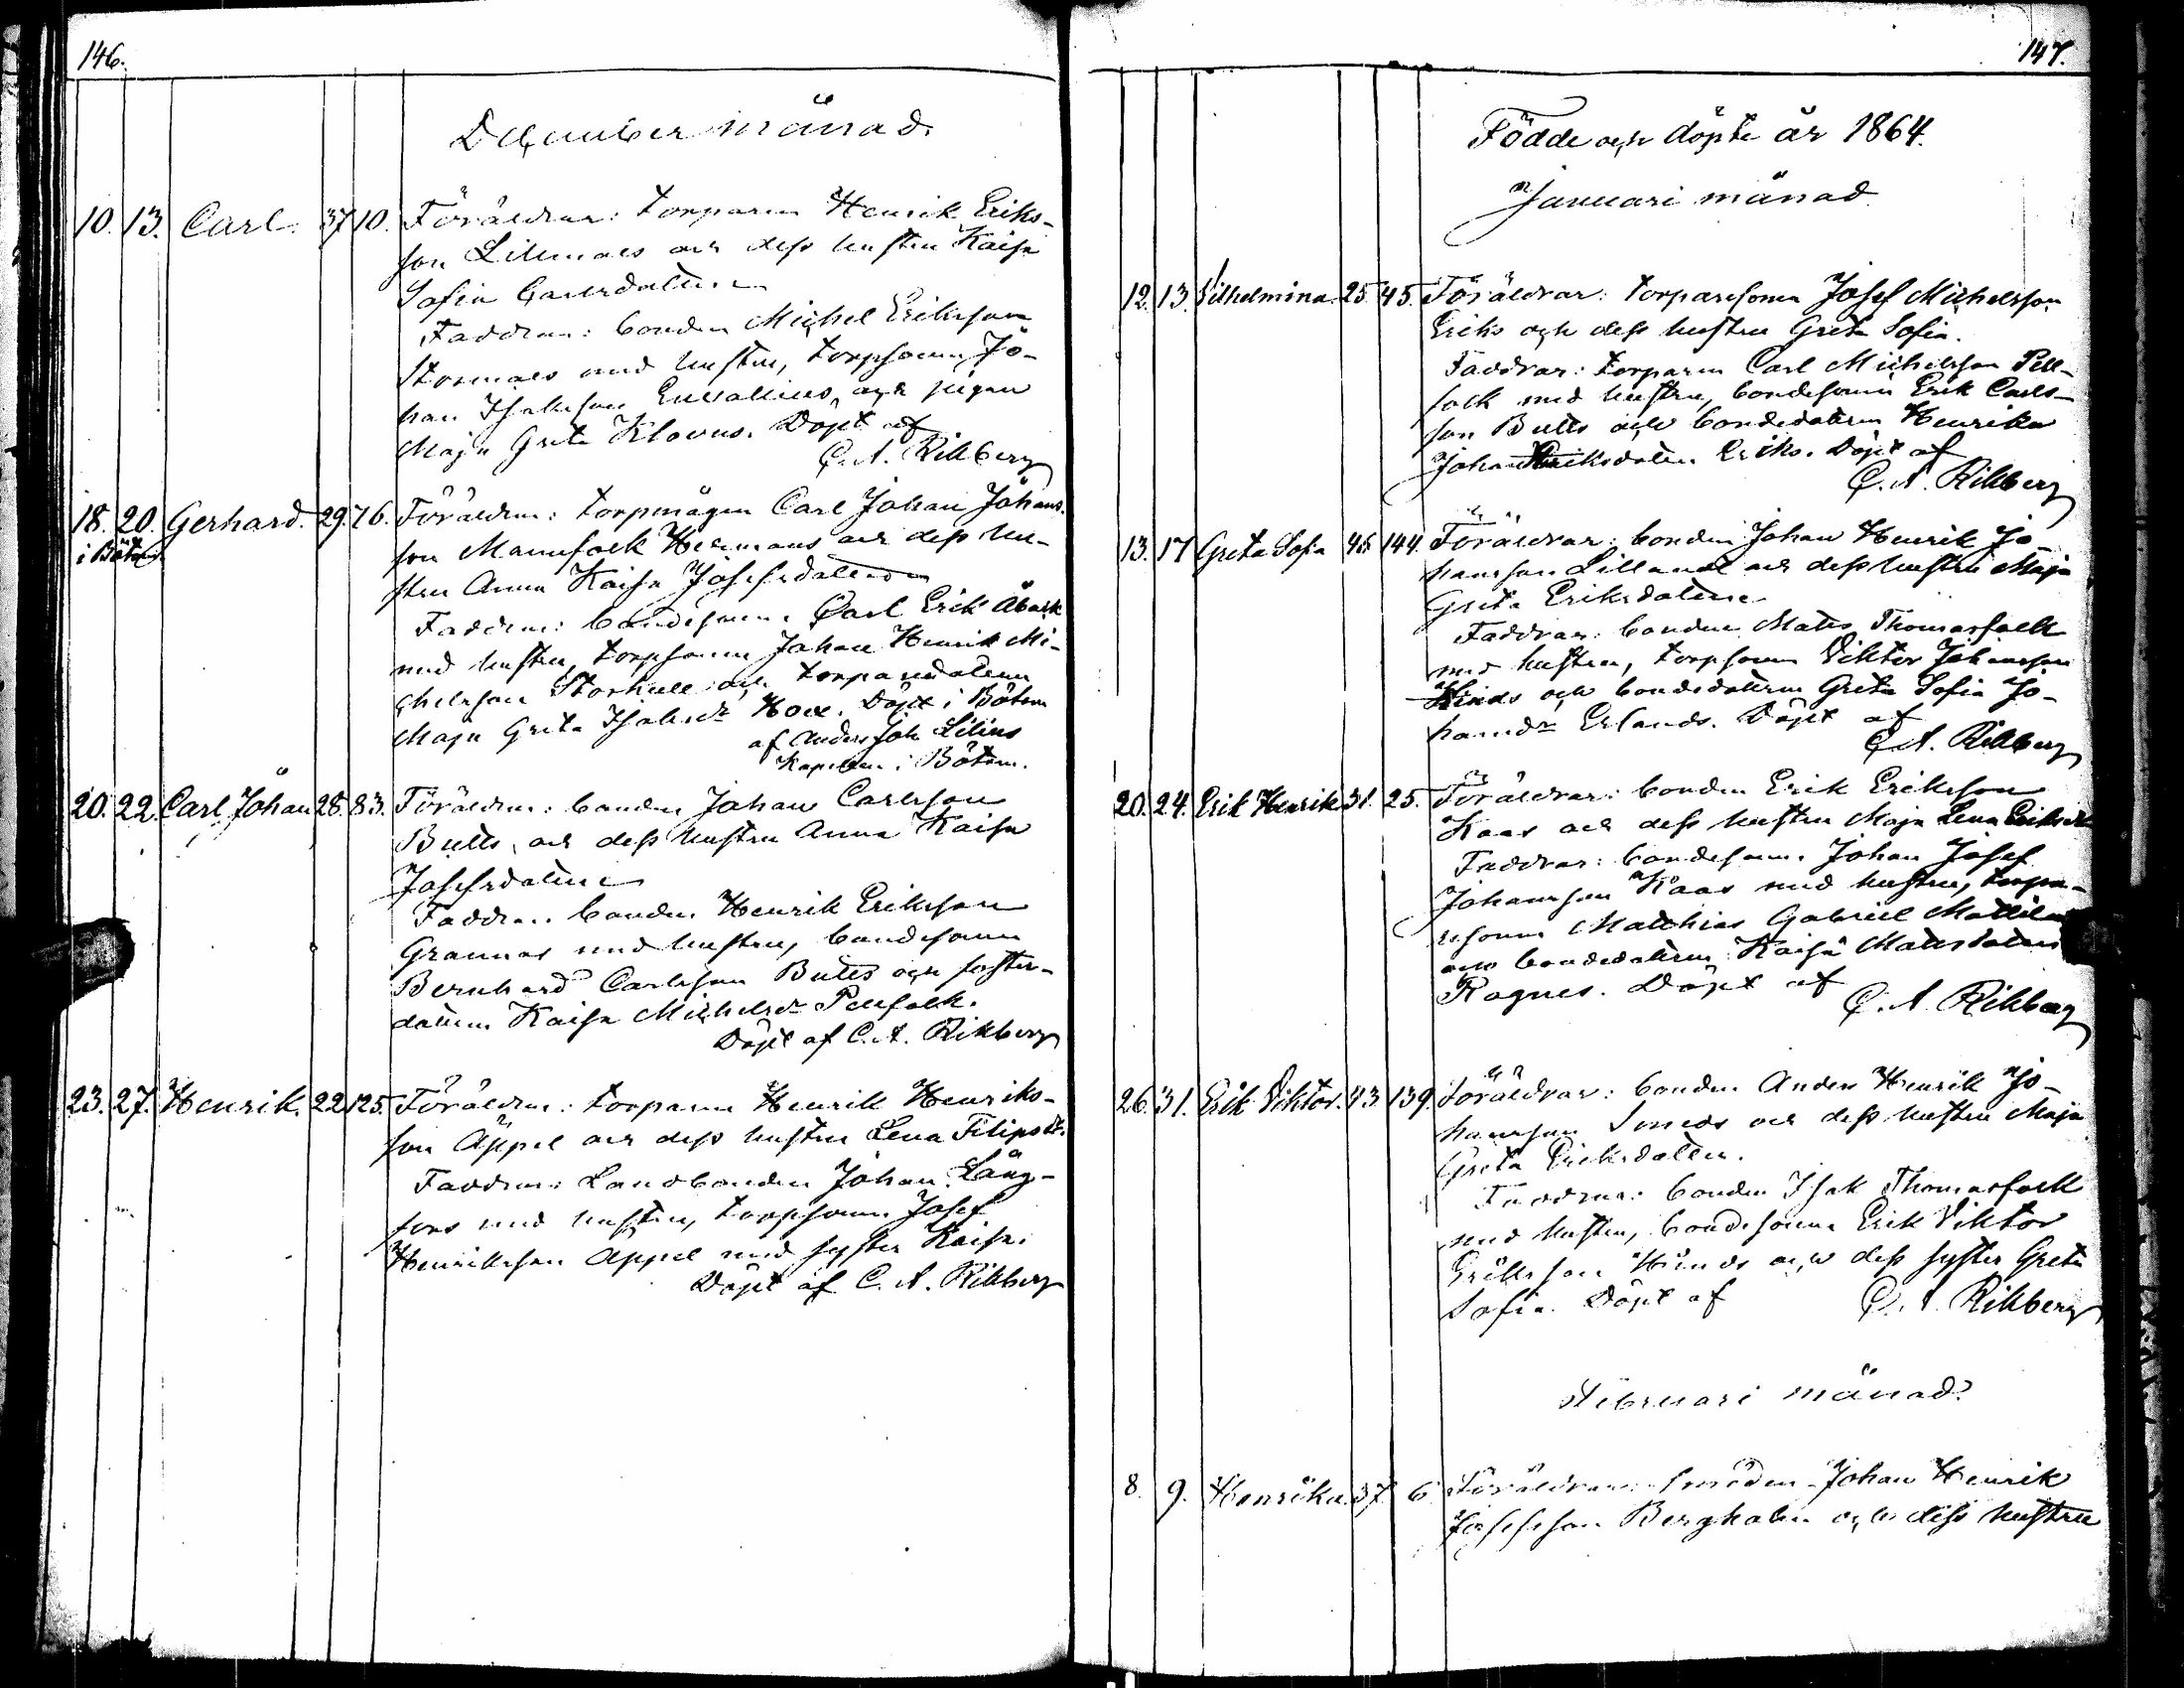 146.
December månad.
10. 13. Carl. 37 10. Föräldrar: torparen Henrik Eriks-
son Lillmaes och dess hustru Kaisa
Sofia Carlsdotter
Faddrar: bonden Michel Eriksson
Stormaes med hustru, torpsonen Jo-
han Isaksson och pigan
Maja Greta Klovus. Döpt af
C. A. Rikberg
18. 20. Gerhard. 29. 76. Föräldrar: torpmågen Carl Johan Johans-
i Bötom son Mannfolk Hermans och dess hu-
stru Anna Kaisa Josefsdotter
Faddrar: bondesonen Carl Erik Åback
med hustru, torpsonen Johan Henrik Mi-
chelsson Storkull och torparedottern
Maja Greta Isaksdr Döpt i Bötom
af Anders Joh Lilius
Kapellan i Bötom.
20. 22. Carl Johan 28. 83. Föräldrar: bonden Johan Carlsson
Butts och dess hustru Anna Kaisa
Josefsdotter
Faddrar: bonden Henrik Eriksson
Grannas med hustru, bondesonen
Bernhard Carlsson Butts och foster-
dottern Kaisa Michelsdr Pellfolk.
Döpt af C. A. Rikberg
23. 27. Henrik. 22 125. Föräldrar: torparen Henrik Henriks-
son Äppel och dess hustru Lena Filipsdr.
Faddrar: Landbonden Johan Lång-
fors med hustru, torpsonen Josef
Henriksson Äppel med syster Kaisa.
Döpt af C. A. Rikberg
147.
Födde och döpte år 1864.
Januari månad
12. 13. Vilhelmina. 25. 45. Föräldrar: torparesonen Josef Michelsson
Eriks och dess hustru Greta Sofia.
Faddrar: torparen Carl Michelsson Pell-
folk med hustru, bondesonen Erik Carls-
son Butts och bondedottern Henrika
Johan Eriksdotter Eriks. Döpt af
C. A. Rikberg
13. 17 Greta Sofia 45 144. Föräldrar: bonden Johan Henrik Jo-
hansson Lillandt och dess hustru Maja
Greta Eriksdotter
Faddrar: bonden Matts Thomasfolk
med hustru, torpsonen Viktor Johansson
Hinds och bondedottern Greta Sofia Jo-
hansdr Erlands. Döpt af
C. A. Rikberg
20. 24. Erik Henrik 31. 25. Föräldrar: bonden Erik Eriksson
Kaas och dess hustru Maja Lena Eriksdr
Faddrar: bondesonen Johan Josef
Johansson Kaas med hustru, torpa-
resonen Matthias Gabriel
och bondedottern Kaisa Mattsdotter
Ragnes. Döpt af
C. A. Rikberg
26. 31. Erik Viktor. 23. 139. Föräldrar: bonden Anders Henrik Jo-
hansson Smeds och dess hustru Maja
Greta Eriksdotter.
Faddrar: bonden Isak Thomasfolk
med hustru, bondesonen Erik Viktor
Eriksson Hinds och dess syster Greta
Sofia. Döpt af C. A. Rikberg
Februari månad
8. 9. Henrika. 37 6 Föräldrar: smeden Johan Henrik
Josefsson Bergholm och dess hustru